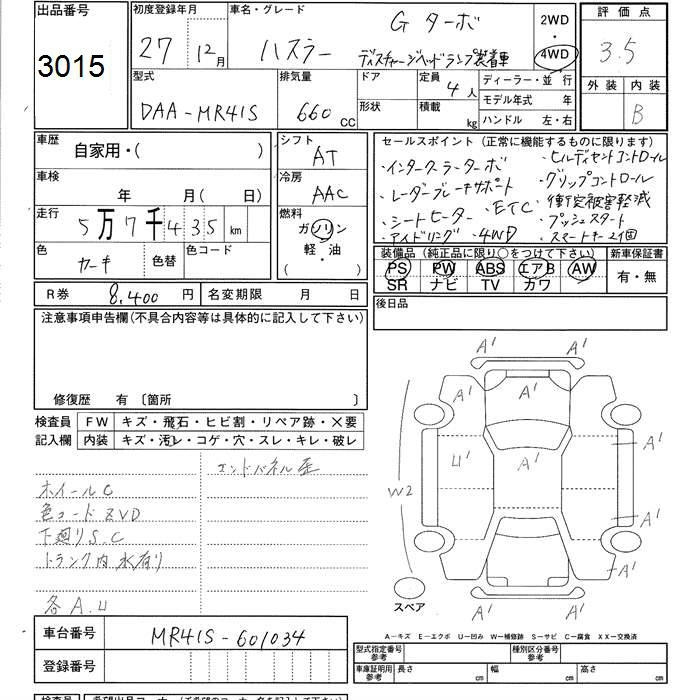 出品番号
3015
初度登録年月
27年12月
車名・グレード
G ターボ
ハスラー ディスチャージヘッドランプ装着車
2WD
・
4WD
評価点
3.5
外装 内装
B
型式
DAA-MR41S
排気量
660 CC
ドア
形状
定員
4人
積載
kg
ディーラー・並行
モデル年式 年
ハンドル 左・右
車歴
自家用・( )
車検
年 月( 日)
走行
5万7千435 km
色
カーキ
色替
色コード
シフト
AT
冷房
AAC
燃料
ガソリン
軽・油
( ・ )
セールスポイント(正常に機能するものに限ります)
・インタークーラーターボ
・ヒルディセントコントロール
・レーダーブレーキサポート
・グリップコントロール
・シートヒーター
・ETC
・衝突被害軽減
・アイドリング
・4WD
・プッシュスタート
・スマートキー2個
装備品(純正品に限り○をつけて下さい)
PS PW ABS エアB AW
SR ナビ TV カワ
新車保証書
有・無
R券
8,400円
名変期限 月 日
後日品
注意事項申告欄(不具合内容等は具体的に記入して下さい)
修復歴 有 〔箇所 〕
検査員
記入欄
FW キズ・飛石・ヒビ割・リペア跡・×要
内装 キズ・汚レ・コゲ・穴・スレ・キレ・破レ
エンドパネル歪
ホイールC
色コード ZVD
下廻りS.C
トランク内 水有り
各A.U
A' A'
A' A'
U' A' A'
W2
A'
A'
A' A'
スペア
A-キズ E-エクボ U-凹み W-補修跡 S-サビ C-腐食 XX-交換済
車台番号
MR41S-601034
登録番号
型式指定番号
参考
種別区分番号
参考
車庫証明用
参考
長さ cm 幅 cm 高さ cm